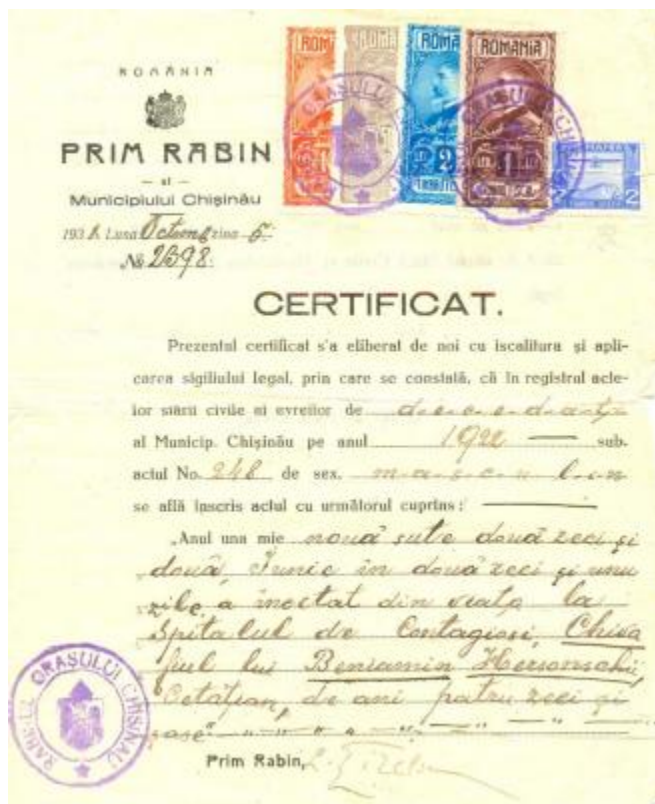 ROMÂNIA
PRIM RABIN
— al —
Municipiului Chișinău
193 Luna ziua 5
№ 2398
ROM
ROMA
ROMANIA
2
1
2
CERTIFICAT.
Prezentul certificat s'a eliberat de noi cu iscalitura și apli-
carea sigiliului legal, prin care se constată, că în registrul acte-
lor stării civile ai evreilor de decedați
al Municip. Chișinău pe anul 1922 — sub.
actul No. 248 de sex. masculin
se află înscris actul cu următorul cuprins: —
„Anul una mie nouă sute două zeci și
două, Iunie în două zeci și unu
zile, a încetat din viață la
Spitalul de Contagioși, Chiva
fiul lui Beniamin Hersonschii,
Cetățian, de ani patru zeci și
șase"
ORAȘULUI CHIȘINĂU
Prim Rabin,